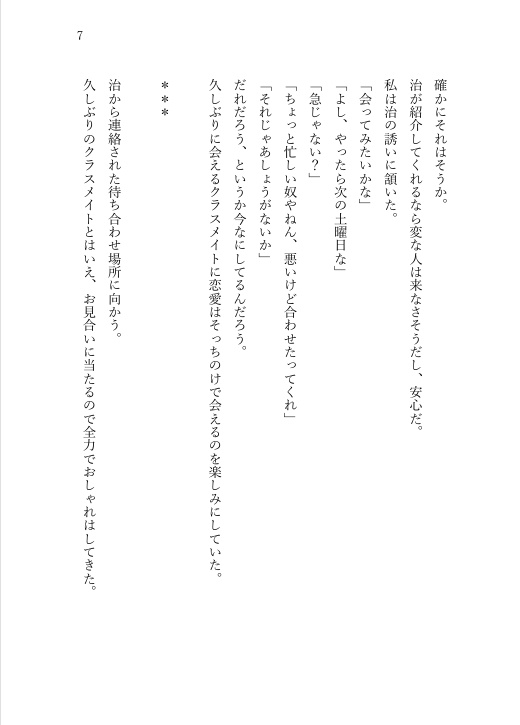 7
確かにそれはそうか。
治が紹介してくれるなら変な人は来なさそうだし、安心だ。
私は治の誘いに頷いた。
「会ってみたいかな」
「よし、やったら次の土曜日な」
「急じゃない？」
「ちょっと忙しい奴やねん、悪いけど合わせたってくれ」
「それじゃあしょうがないか」
だれだろう、というか今なにしてるんだろう。
久しぶりに会えるクラスメイトに恋愛はそっちのけで会えるのを楽しみにしていた。
＊＊＊
治から連絡された待ち合わせ場所に向かう。
久しぶりのクラスメイトとはいえ、お見合いに当たるので全力でおしゃれはしてきた。